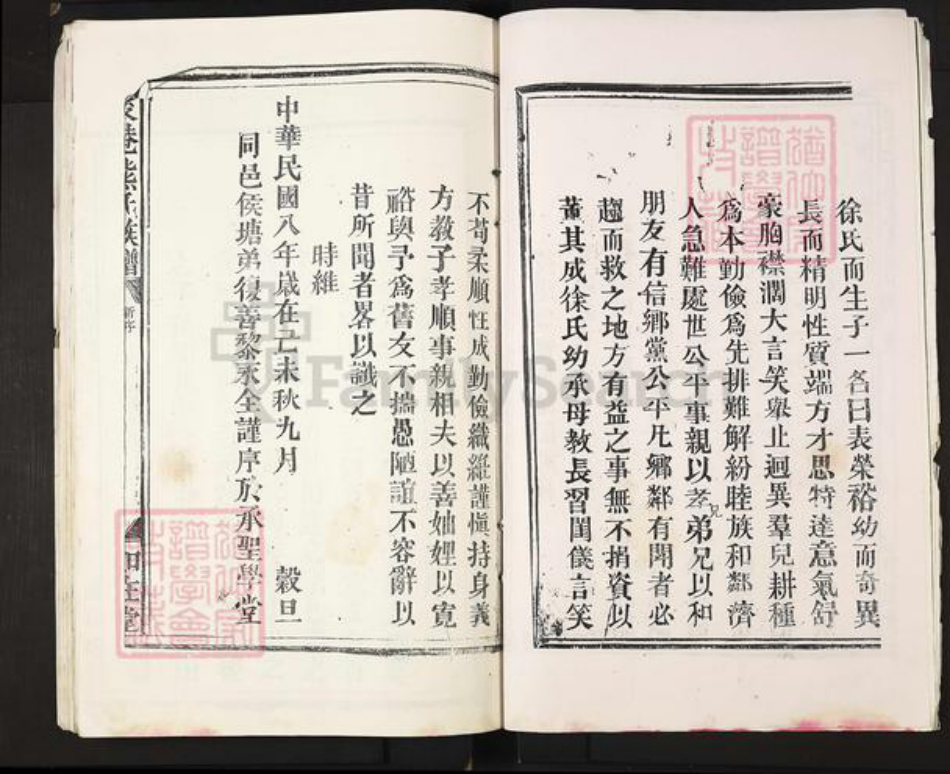 徐氏而生子一名曰表榮裕幼而奇異
長而精明性質端方才思特達意氣舒
豪胸襟濶大言笑舉止迴異羣兒耕種
爲本勤儉爲先排難解紛睦族和鄰濟
人急難處世公平事親以孝弟兄以和
兄
朋友有信鄉黨公平凡鄉鄰有鬧者必
趨而救之地方有益之事無不捐資以
董其成徐氏幼承母教長習閨儀言笑
不苟柔順性成勤儉纖維謹愼持身義
方教子孝順事親相夫以善妯娌以寛
裕與予爲舊友不揣愚陋誼不容辭以
昔所聞者畧以識之
時維
中華民國八年歲在己未秋九月 穀旦
同邑侯塘弟復善黎永全謹序於承聖學堂
氏族譜
新序
FamilySearch